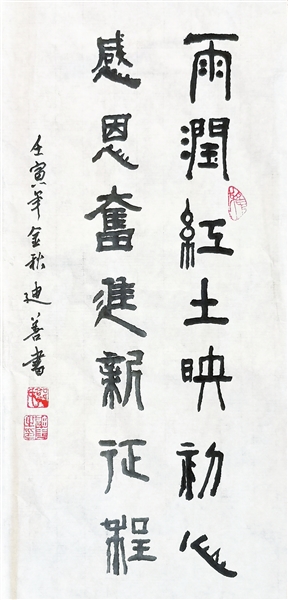 雨潤紅土映初心
感恩奮進新征程
壬寅年金秋迪善書